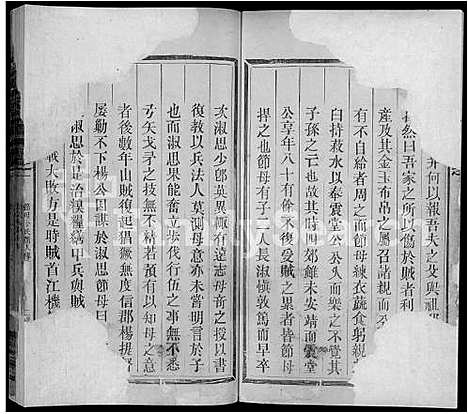 何以報吾夫之父與祖
然曰吾家之所以傷於賊者利
產及其金玉布帛之屬召諸親而
有不自給者周之而節母練衣蔬食躬親
臼持菽水以奉雲堂公公久而樂之不覺其
子孫之亡也當此時四郊雖未安靖而雲堂
公享年八十有餘不復受賊之累者皆節母
捍之也節母有子二人長淑慎敦篤而早卒
次淑思少郎英異極有遠志母奇之授以書
復教以兵法人莫測母意亦未嘗明言於子
也而淑思果能奮立步伐行伍之事無不悉
弓矢戈矛之技無不精若預有以知母之意
者後數年山賊復猖獗無度信郡楊提督
屢勦不下楊公因謀於淑思節母曰
淑思於是治糗糧繕甲兵與賊
戰大敗方是時賊首江機